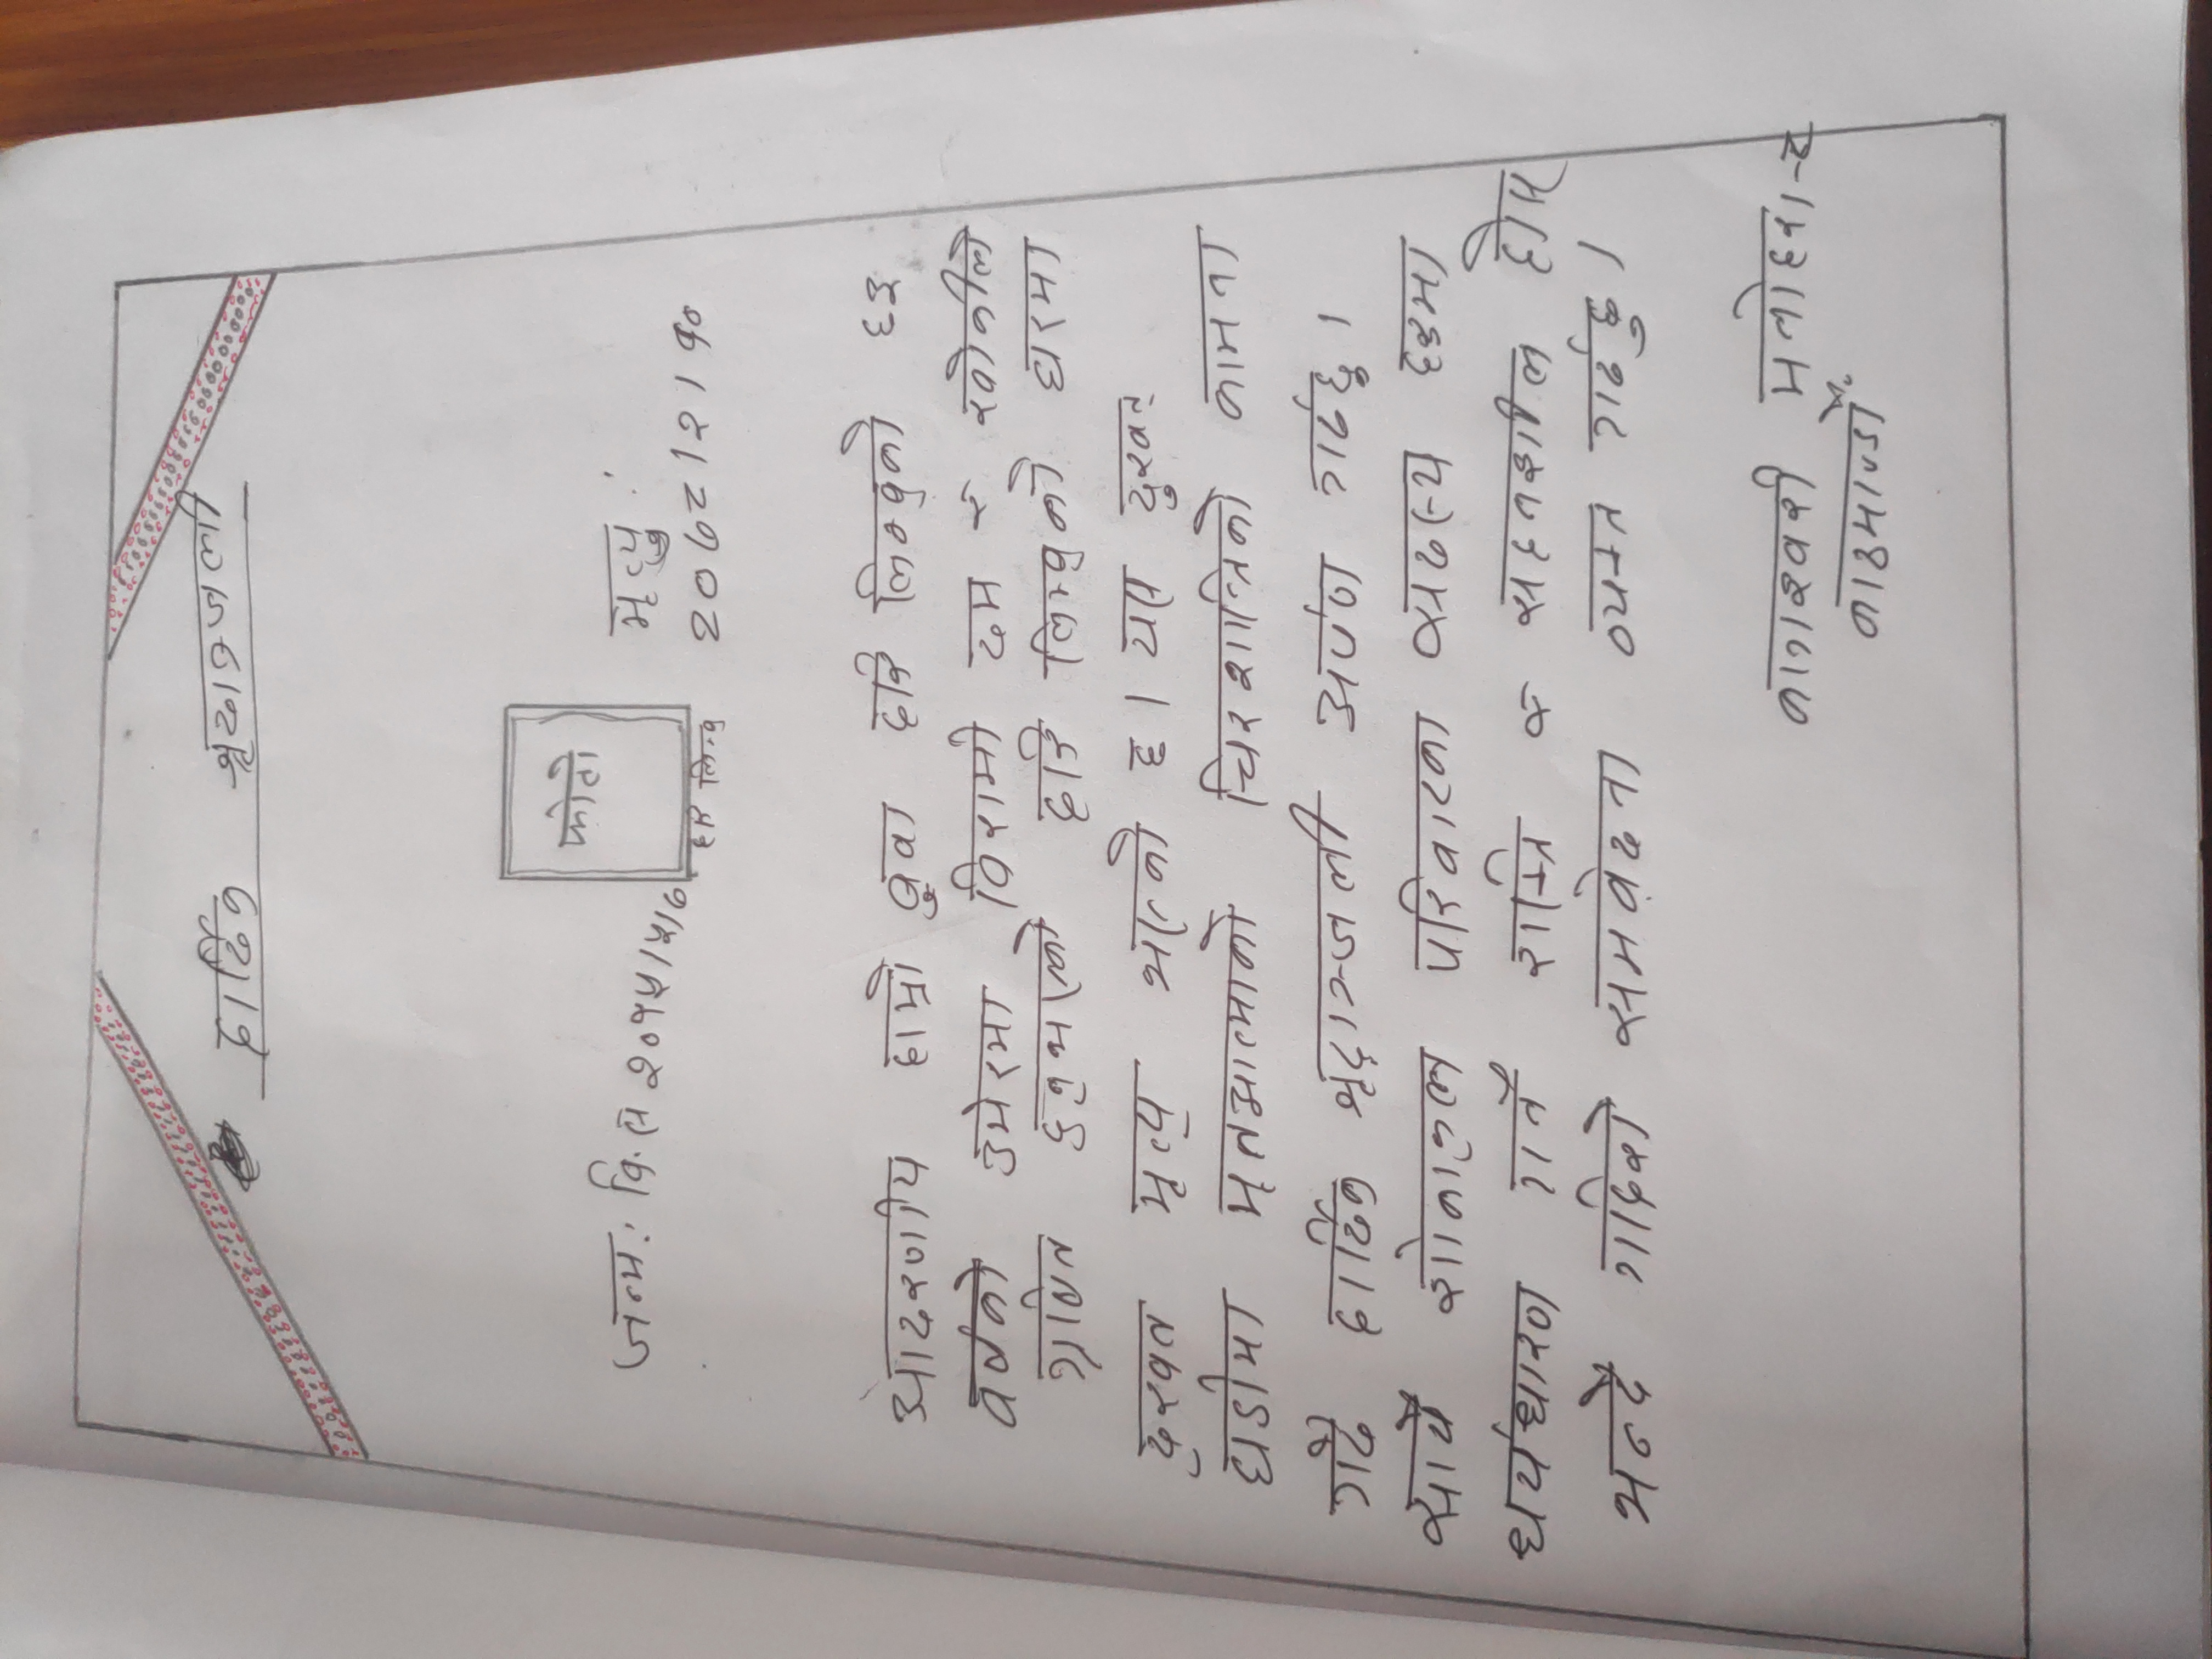 हार्दिक श्रृदाञ्जली
फोटो
जन्म: वि.स २०१५/५/७
हरि लिम्बु
मृत्यु:
२०७८/२/१०
आदरणीय हाम्रो बुवा हरि लिम्बुको ६३
वर्षको उमेरमा विरामी दम र खोकीले
ग्रसित हुनुभएको हरि लिम्बुको घरमा
दुखत मृत्यु भएको छ। यस दुखत
घडीमा मृतआत्माको चिरशान्तिको कामना
गर्दै हार्दिक श्रृद्राञ्जली अर्पण गर्दछु।
साथै शोकाकुल परिवारका सदस्य हरुमा
धर्यधारण गर्ने शक्ति र सहनशील होस्
भन्दै गहिरो समवेदना व्यक्त गर्दछु।
कागेश्वरी मनोहरा-८
काठमाण्डौं